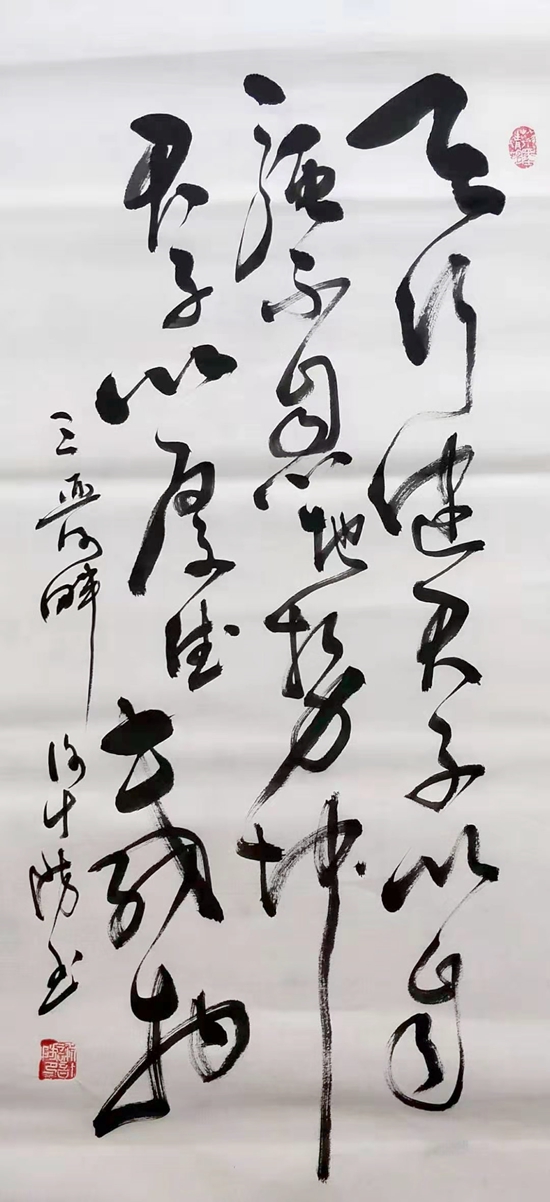 天行健君子以自
强不息地势坤
君子以厚德载物
三亚河畔
书